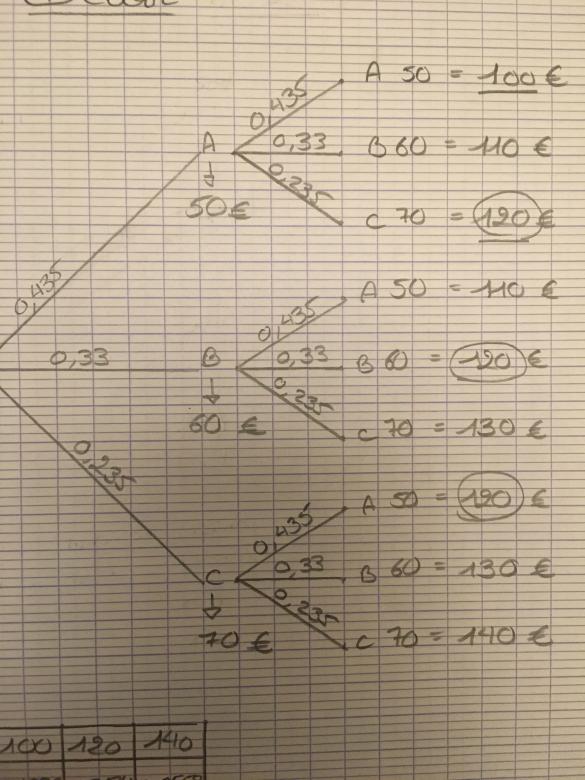 0,435 A 50 = 100 €
A 0,33 B 60 = 110 €
0,235 C 70 = 120 €
50 €
0,435
0,435 A 50 = 110 €
0,33 B 0,33 B 60 = 120 €
0,235 C 70 = 130 €
60 €
0,235
0,435 A 50 = 120 €
C 0,33 B 60 = 130 €
0,235 C 70 = 140 €
70 €
100 120 140